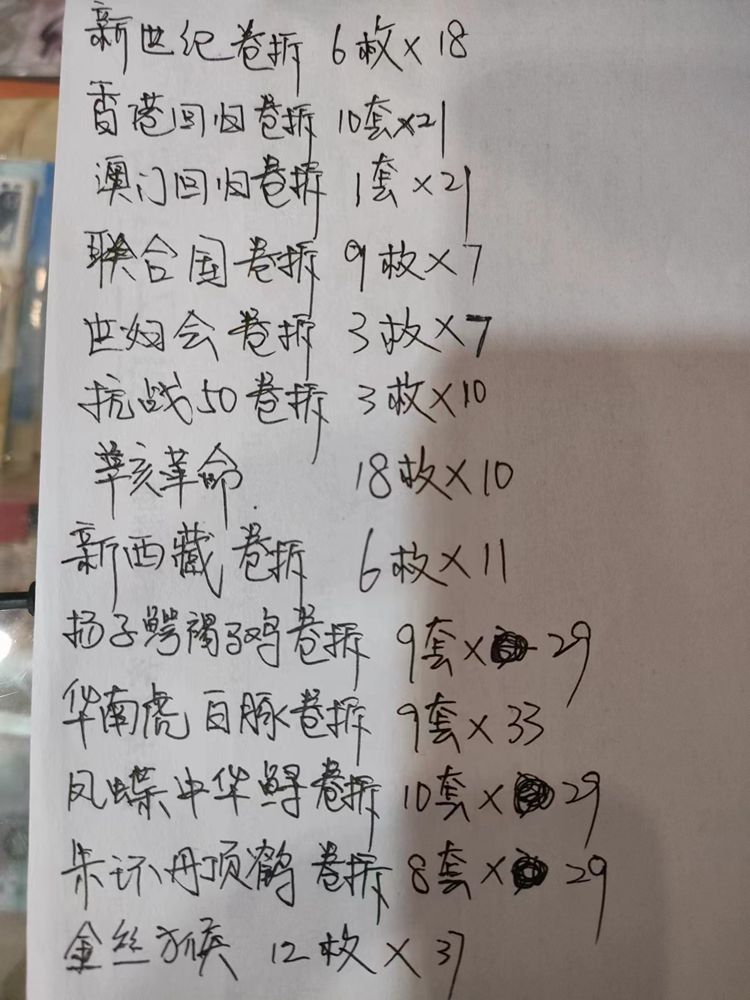 新世纪卷拆 6枚×18
香港回归卷拆 10套×21
澳门回归卷拆 1套×21
联合国卷拆 9枚×7
世妇会卷拆 3枚×7
抗战50卷拆 3枚×10
辛亥革命 18枚×10
新西藏卷拆 6枚×11
扬子鳄褐马鸡卷拆 9套×29
华南虎白豚卷拆 9套×33
凤蝶中华鲟卷拆 10套×29
朱环丹顶鹤卷拆 8套×29
金丝猴 12枚×37